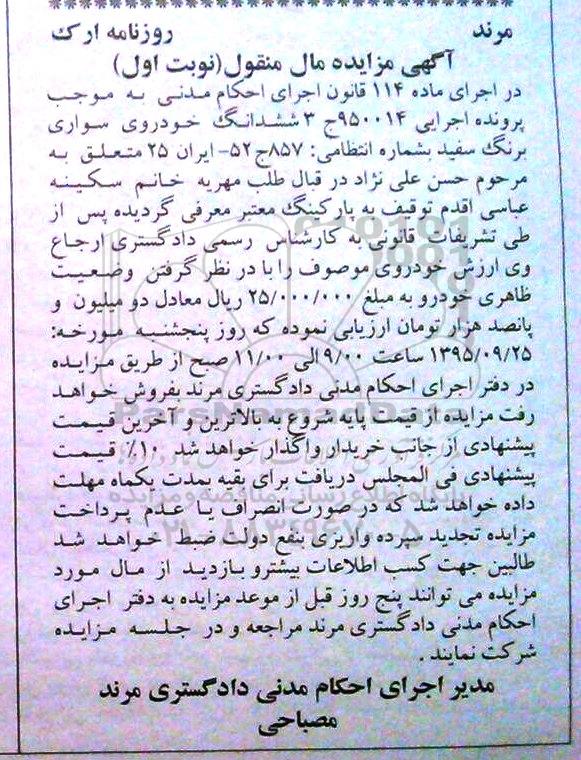 مرند روزنامه ارک
آگهی مزایده مال منقول(نوبت اول)
در اجرای ماده ۱۱۴ قانون اجرای احکام مدنی به موجب
پرونده اجرایی ۹۵۰۰۱۴ج ۳ ششدانگ خودروی سواری
برنگ سفید بشماره انتظامی: ۸۵۷ج۵۲- ایران ۲۵ متعلق به
مرحوم حسن علی نژاد در قبال طلب مهریه خانم سکینه
عباسی اقدم توقیف به پارکینگ معتبر معرفی گردیده پس از
طی تشریفات قانونی به کارشناس رسمی دادگستری ارجاع
وی ارزش خودروی موصوف را با در نظر گرفتن وضعیت
ظاهری خودرو به مبلغ ۲۵/۰۰۰/۰۰۰ ریال معادل دو میلیون و
پانصد هزار تومان ارزیابی نموده که روز پنجشنبه مورخه:
۱۳۹۵/۰۹/۲۵ ساعت ۹/۰۰ الی ۱۱/۰۰ صبح از طریق مزایده
در دفتر اجرای احکام مدنی دادگستری مرند بفروش خواهد
رفت مزایده از قیمت پایه شروع به بالاترین و آخرین قیمت
پیشنهادی از جانب خریدار واگذار خواهد شد ۱۰٪ قیمت
پیشنهادی فی المجلس دریافت برای بقیه بمدت یکماه مهلت
داده خواهد شد که در صورت انصراف یا عدم پرداخت
مزایده تجدید سپرده واریزی بنفع دولت ضبط خواهد شد
طالبین جهت کسب اطلاعات بیشترو بازدید از مال مورد
مزایده می توانند پنج روز قبل از موعد مزایده به دفتر اجرای
احکام مدنی دادگستری مرند مراجعه و در جلسه مزایده
شرکت نمایند .
مدیر اجرای احکام مدنی دادگستری مرند
مصباحی
ParsNamadData
پایگاه اطلاع رسانی مناقصه و مزایده